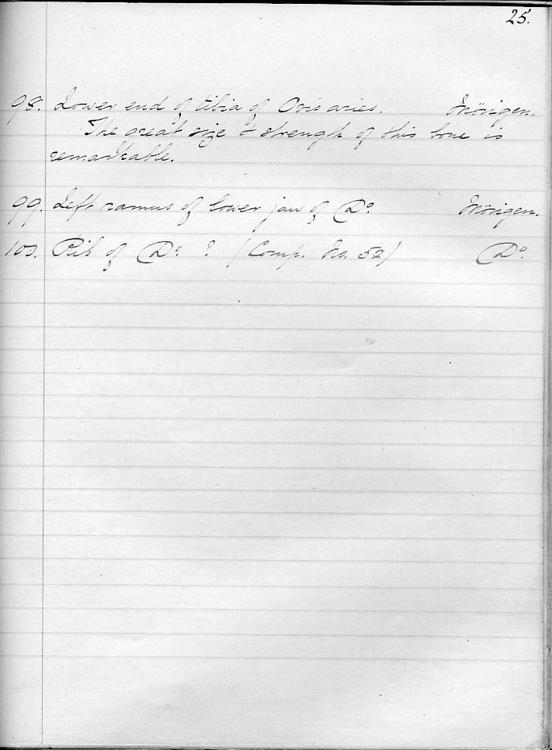 25.
98. Lower end of tibia of Ovis aries. Mörigen.
The great size & strength of this bone is
remarkable.
99. Left ramus of lower jaw of Do. Mörigen.
100. Rib of Do. ? (Comp. No. 52) Do.